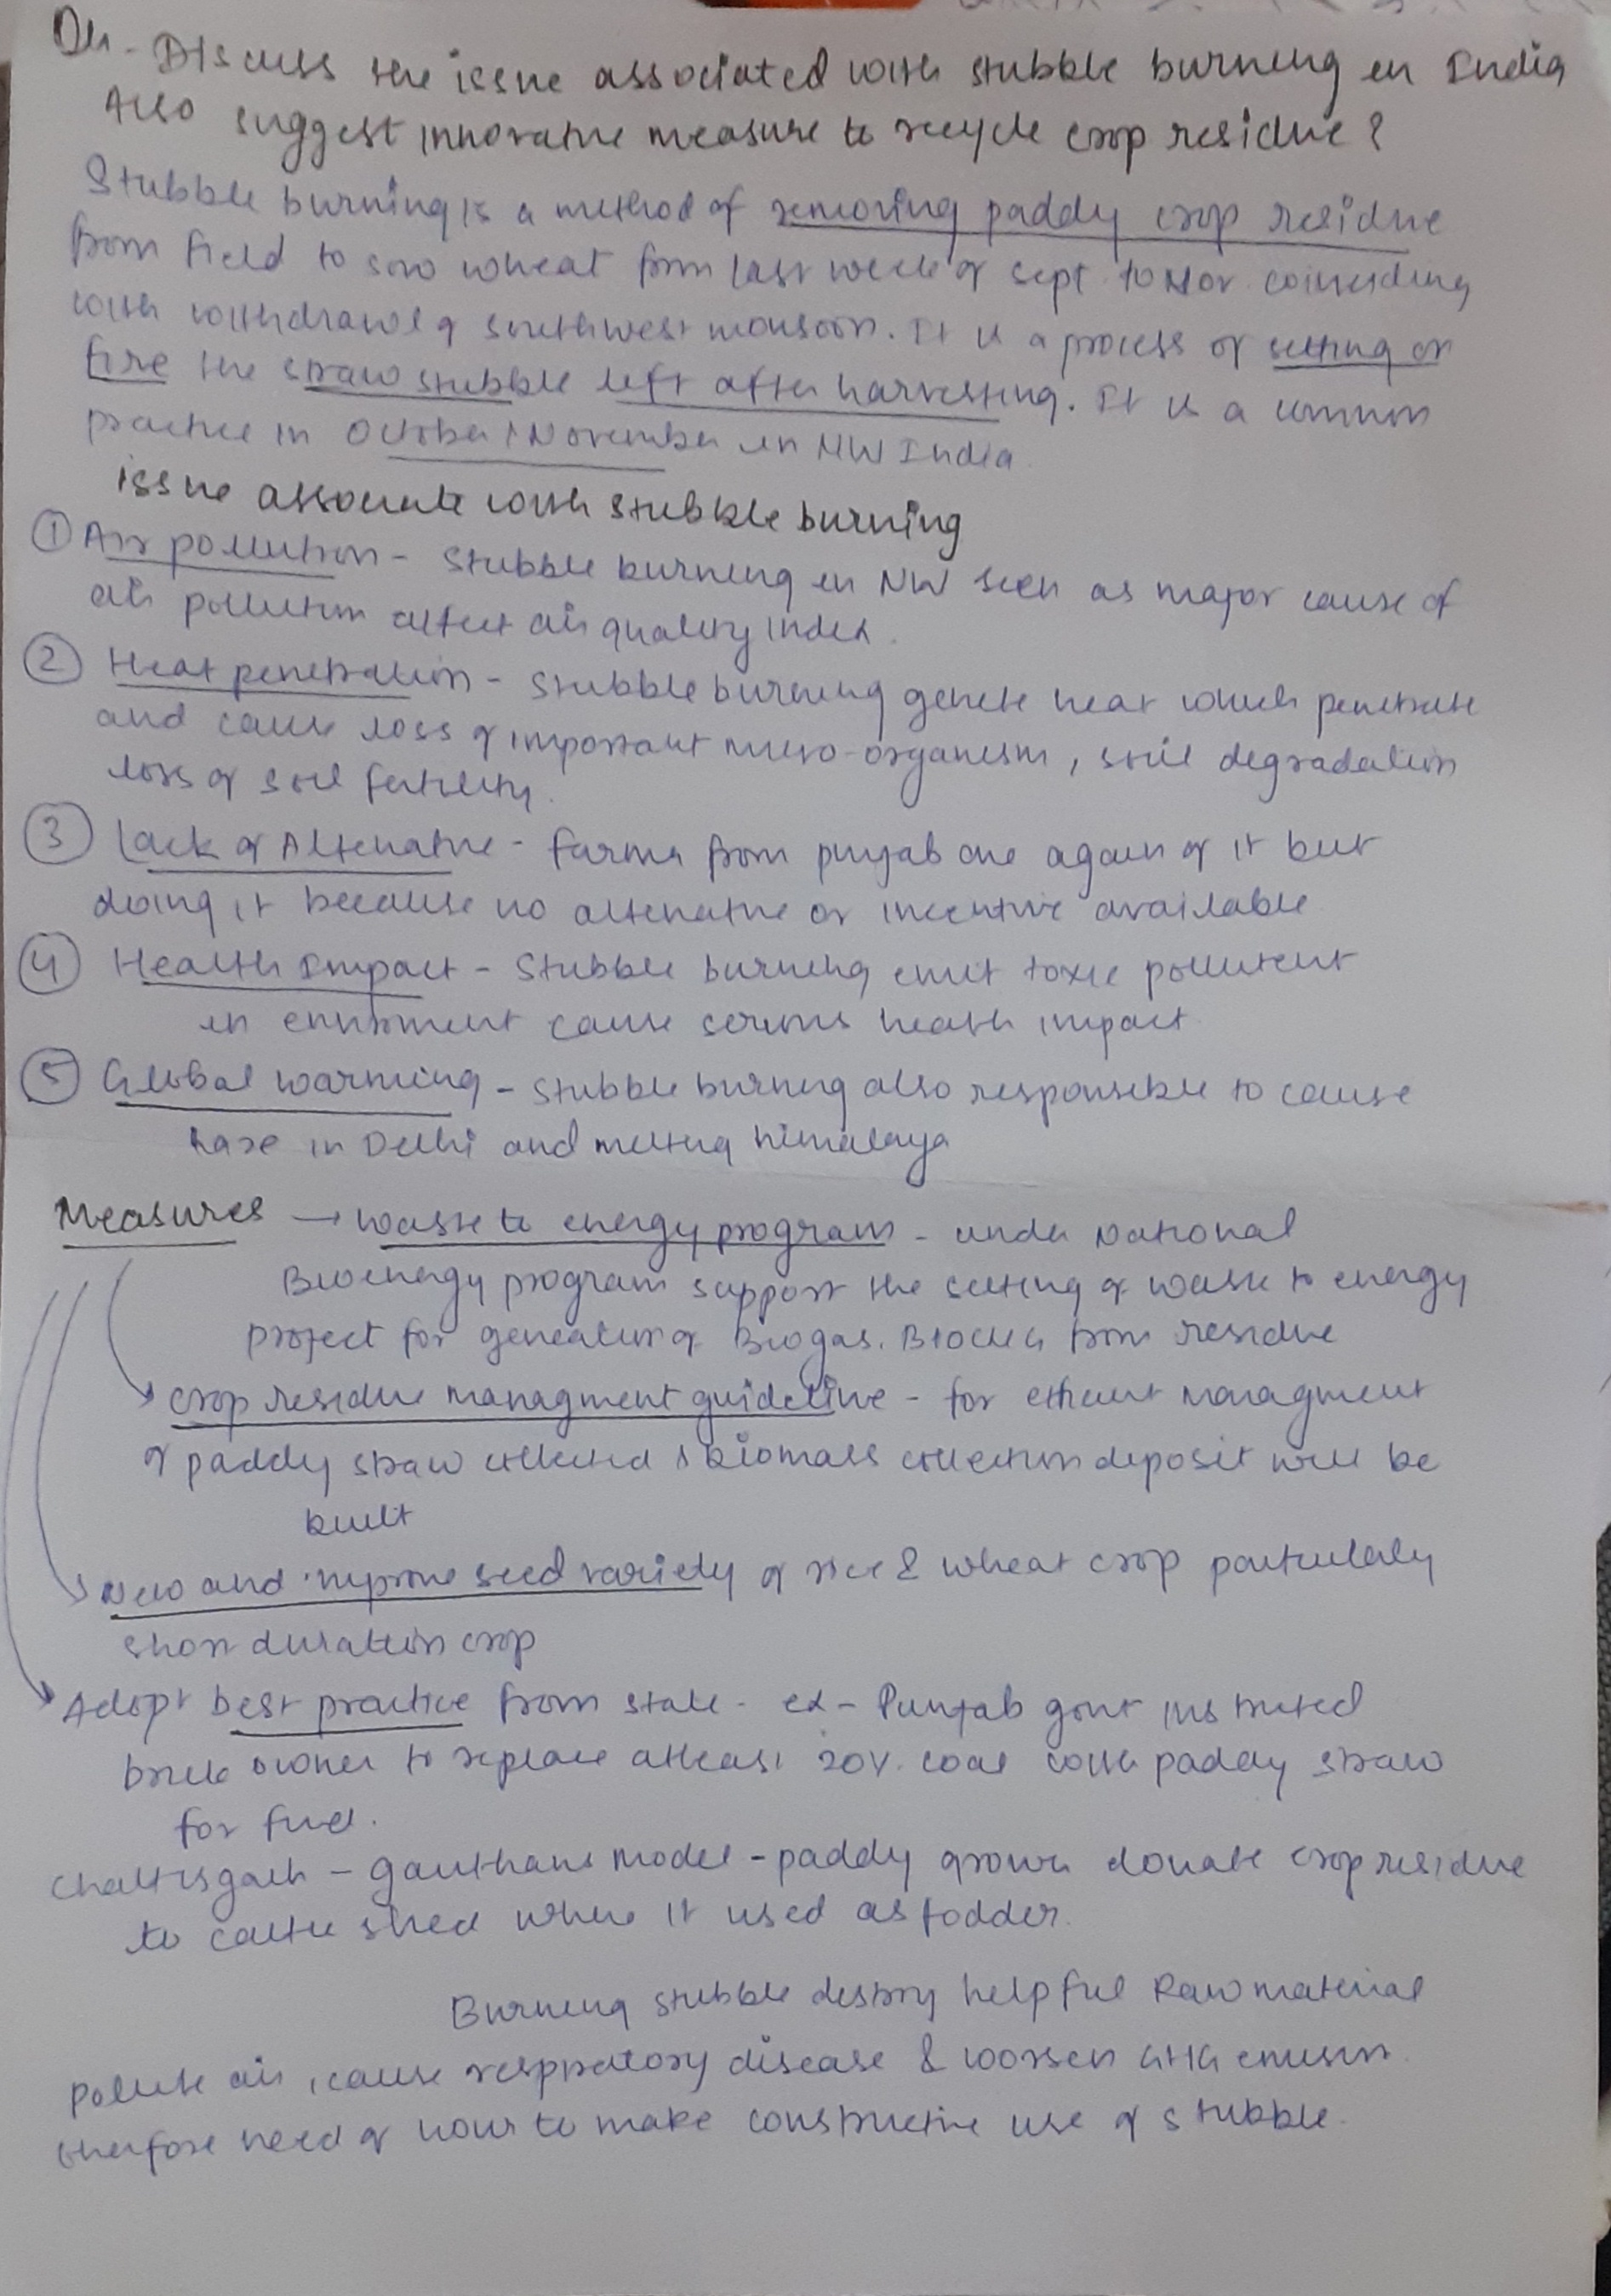 Qu - Discuss the issue associated with stubble burning in India
Also suggest innovative measure to recycle crop residue ?
Stubble burning is a method of removing paddy crop residue
from field to sow wheat from last week of sept to Nov coinciding
with withdrawl of southwest monsoon. It is a process of setting on
fire the straw stubble left after harvesting. It is a common
practice in October & November in NW India
issue associate with stubble burning
① Air pollution - Stubble burning in NW seen as major cause of
air pollution affect air quality index.
② Heat penetration - Stubble burning genete heat which penetrate
and cause loss of important micro-organism, soil degradation
loss of soil fertility.
③ Lack of Alternative - farmer from punjab are again of it but
doing it because no alternative or incentive available
④ Health Impact - Stubble burning emit toxic pollutent
in envirnment cause serious health impact
⑤ Global warming - stubble burning also responsible to cause
haze in Delhi and melting himalaya
Measures → waste to energy program - under National
Bioenergy program support the setting of waste to energy
project for generation of Biogas. from residue
crop residue managment guideline - for efficient managment
of paddy straw collected & biomass collection deposit will be
built
New and improve seed variety of rice & wheat crop particularly
short duration crop
Adopt best practice from state - ex - Punjab govt instructed
brick owner to replace atleast 20%. coal with paddy straw
for fuel.
Chattisgarh - gauthans model - paddy grower donate crop residue
to cattle shed where it used as fodder.
Burning stubble destroy helpful Raw material
pollute air, cause respiratory disease & worsen GHG emission.
therefore need of hour to make constructive use of stubble.